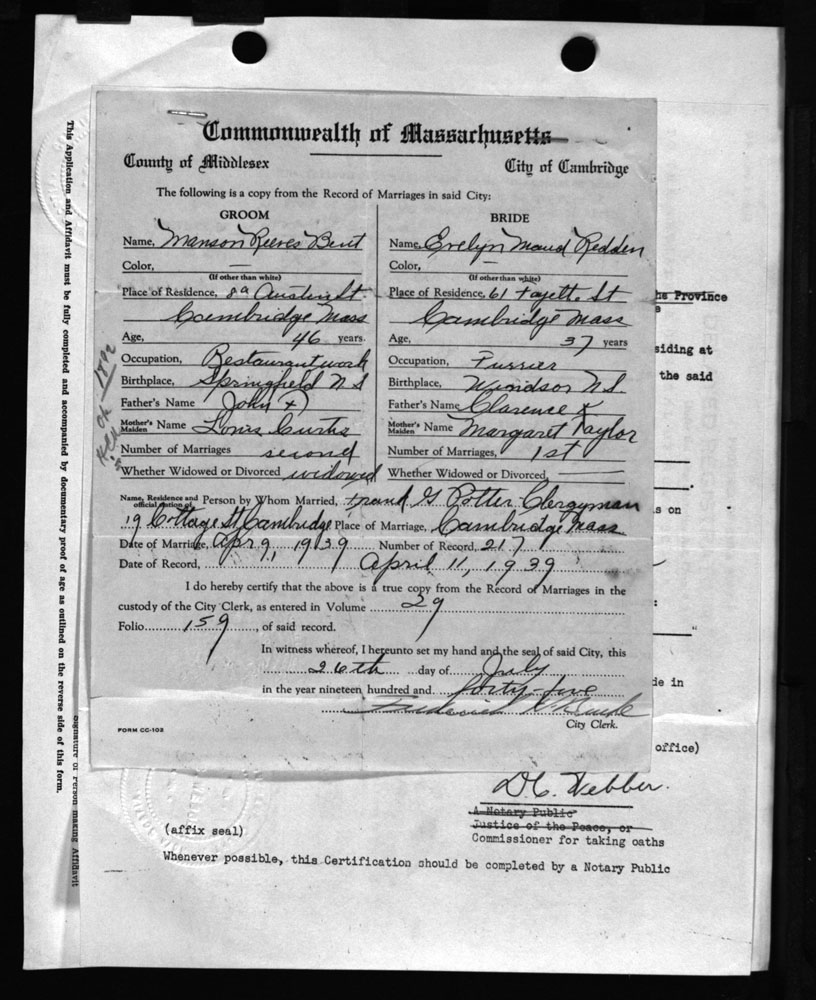 Commonwealth of Massachusetts
County of Middlesex City of Cambridge
The following is a copy from the Record of Marriages in said City:
GROOM
Name, Manson Reeves Bent
Color, —
(If other than white)
Place of Residence, 8a Austin St
Cambridge Mass
Age, 46 years.
Occupation, Restaurant work
Birthplace, Springfield N.S
Father's Name John
Mother's Maiden Name Curtis
Number of Marriages second
Whether Widowed or Divorced widowed
BRIDE
Name, Evelyn Maud Redden
Color, —
(If other than white)
Place of Residence, 61 Fayette St
Cambridge Mass
Age, 37 years
Occupation, Furrier
Birthplace, Windsor N.S.
Father's Name Clarence
Mother's Maiden Name Margaret Taylor
Number of Marriages, 1st
Whether Widowed or Divorced, —
Name, Residence and official station of Person by Whom Married, Frank G Potter Clergyman
19 Cottage St, Cambridge Place of Marriage, Cambridge Mass
Date of Marriage, Apr 9, 1939 Number of Record, 217
Date of Record, April 11, 1939
I do hereby certify that the above is a true copy from the Record of Marriages in the
custody of the City Clerk, as entered in Volume 29
Folio 159, of said record.
In witness whereof, I hereunto set my hand and the seal of said City, this
26th day of July
in the year nineteen hundred and forty-five
Frederick H.
City Clerk.
FORM CC-102
1892
This Application and Affidavit must be fully completed and accompanied by documentary proof of age as outlined on the reverse side of this form.
Signature of Person making Affidavit
he Province
siding at
the said
s on
de in
office)
D C. Webber.
A Notary Public
Justice of the Peace, or
Commissioner for taking oaths
(affix seal)
Whenever possible, this Certification should be completed by a Notary Public